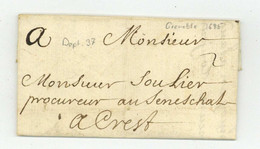 Grenoble 1698
a Monsieur
Dept. 37
2
Monsieur Soulier
procureur au Seneschal
a Crest